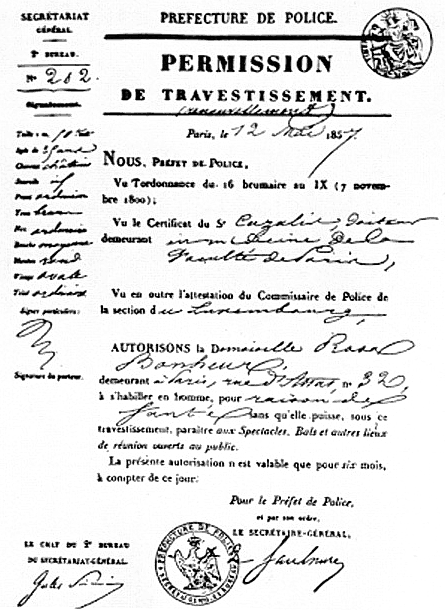 SECRÉTARIAT
GÉNÉRAL.
2e BUREAU.
No 262.
Signalement.
Taille 1 m.
Age de
Cheveux châtains
Sourcils if
Front ordinaire
Yeux bruns
Nez ordinaire
Bouche moyenne
Menton rond
Visage ovale
Teint ordinaire
Signes particuliers:
Signature du porteur.
PREFECTURE DE POLICE.
PERMISSION
DE TRAVESTISSEMENT.
(renouvellement)
Paris, le 12 Mai 1857
NOUS, PRÉFET DE POLICE,
Vu l'ordonnance du 16 brumaire an IX (7 novem-
bre 1800);
Vu le Certificat du Sr Cazalis, docteur
demeurant en médecine de la
Faculté de Paris,
Vu en outre l'attestation du Commissaire de Police de
la section du Luxembourg,
AUTORISONS la Demoiselle Rosa
Bonheur
demeurant à Paris, rue d'Assas, no 32,
à s'habiller en homme, pour raison de
santé sans qu'elle puisse, sous ce
travestissement, paraître aux Spectacles, Bals et autres lieux
de réunion ouverts au public.
La présente autorisation n'est valable que pour six mois,
à compter de ce jour.
Pour le Préfet de Police,
et par son ordre,
LE SECRÉTAIRE-GÉNÉRAL,
LE CHEF DU 2e BUREAU
DU SECRÉTARIAT-GÉNÉRAL
PREFECTURE DE POLICE